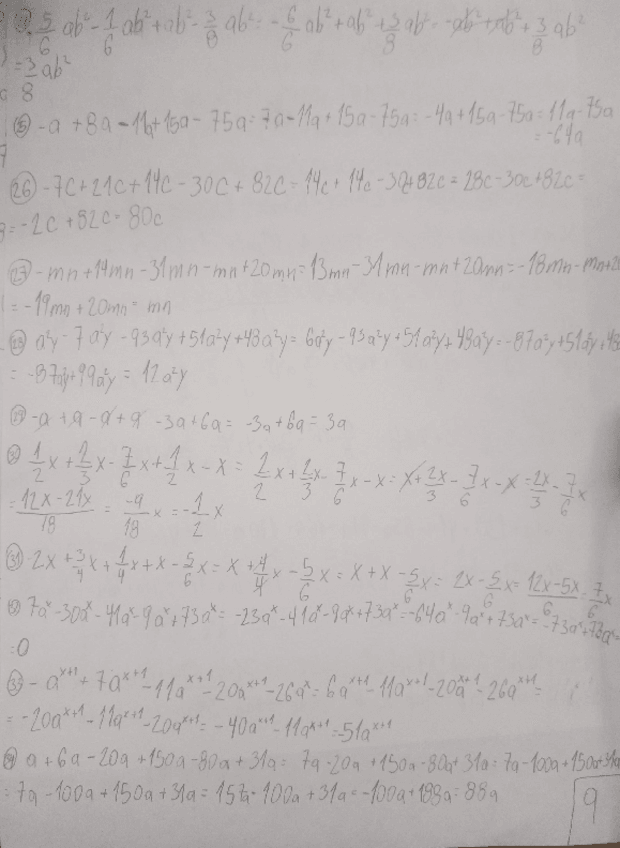 5/6 ab² - 1/6 ab² + ab² - 3/8 ab² = - 6/6 ab² + ab² + 3/8 ab² = -ab² + ab² + 3/8 ab²
= 3/8 ab²
25 -a + 8a - 11a + 15a - 75a = 7a - 11a + 15a - 75a = -4a + 15a - 75a = 11a - 75a
= -64a
26 -7c + 21c + 14c - 30c + 82c = 14c + 14c - 30c + 82c = 28c - 30c + 82c =
= -2c + 82c = 80c
27 -mn + 14mn - 31mn - mn + 20mn = 13mn - 31mn - mn + 20mn = -18mn - mn + 20
= -19mn + 20mn = mn
28 a²y - 7a²y - 93a²y + 51a²y + 48a²y = 6a²y - 93a²y + 51a²y + 48a²y = -87a²y + 51a²y + 48
= -87a²y + 99a²y = 12a²y
29 -a + a - a + a - 3a + 6a = -3a + 6a = 3a
30 1/2 x + 2/3 x - 7/6 x + 1/2 x - x = 2/2 x + 2/3 x - 7/6 x - x = x + 2x/3 - 7/6 x - x = 2x/3 - 7/6 x
= 12x - 21x/18 = -9/18 x = - 1/2 x
31 -2x + 3/4 x + 1/4 x + x - 5/6 x = x + 4/4 x - 5/6 x = x + x - 5/6 x = 2x - 5/6 x = 12x - 5x/6 = 7/6 x
7aˣ - 30aˣ - 41aˣ - 9aˣ + 73aˣ = -23aˣ - 41aˣ - 9aˣ + 73aˣ = -64aˣ - 9aˣ + 73aˣ = -73aˣ + 73aˣ =
= 0
33 -aˣ⁺¹ + 7aˣ⁺¹ - 11aˣ⁺¹ - 20aˣ⁺¹ - 26aˣ = 6aˣ⁺¹ - 11aˣ⁺¹ - 20aˣ⁺¹ - 26aˣ⁺¹ =
= -20aˣ⁺¹ - 11aˣ⁺¹ - 20aˣ⁺¹ = -40aˣ⁺¹ - 11aˣ⁺¹ = -51aˣ⁺¹
a + 6a - 20a + 150a - 80a + 31a = 7a - 20a + 150a - 80a + 31a = 7a - 100a + 150a + 31a
= 7a - 100a + 150a + 31a = 157a - 100a + 31a = -100a + 188a = 88a
9